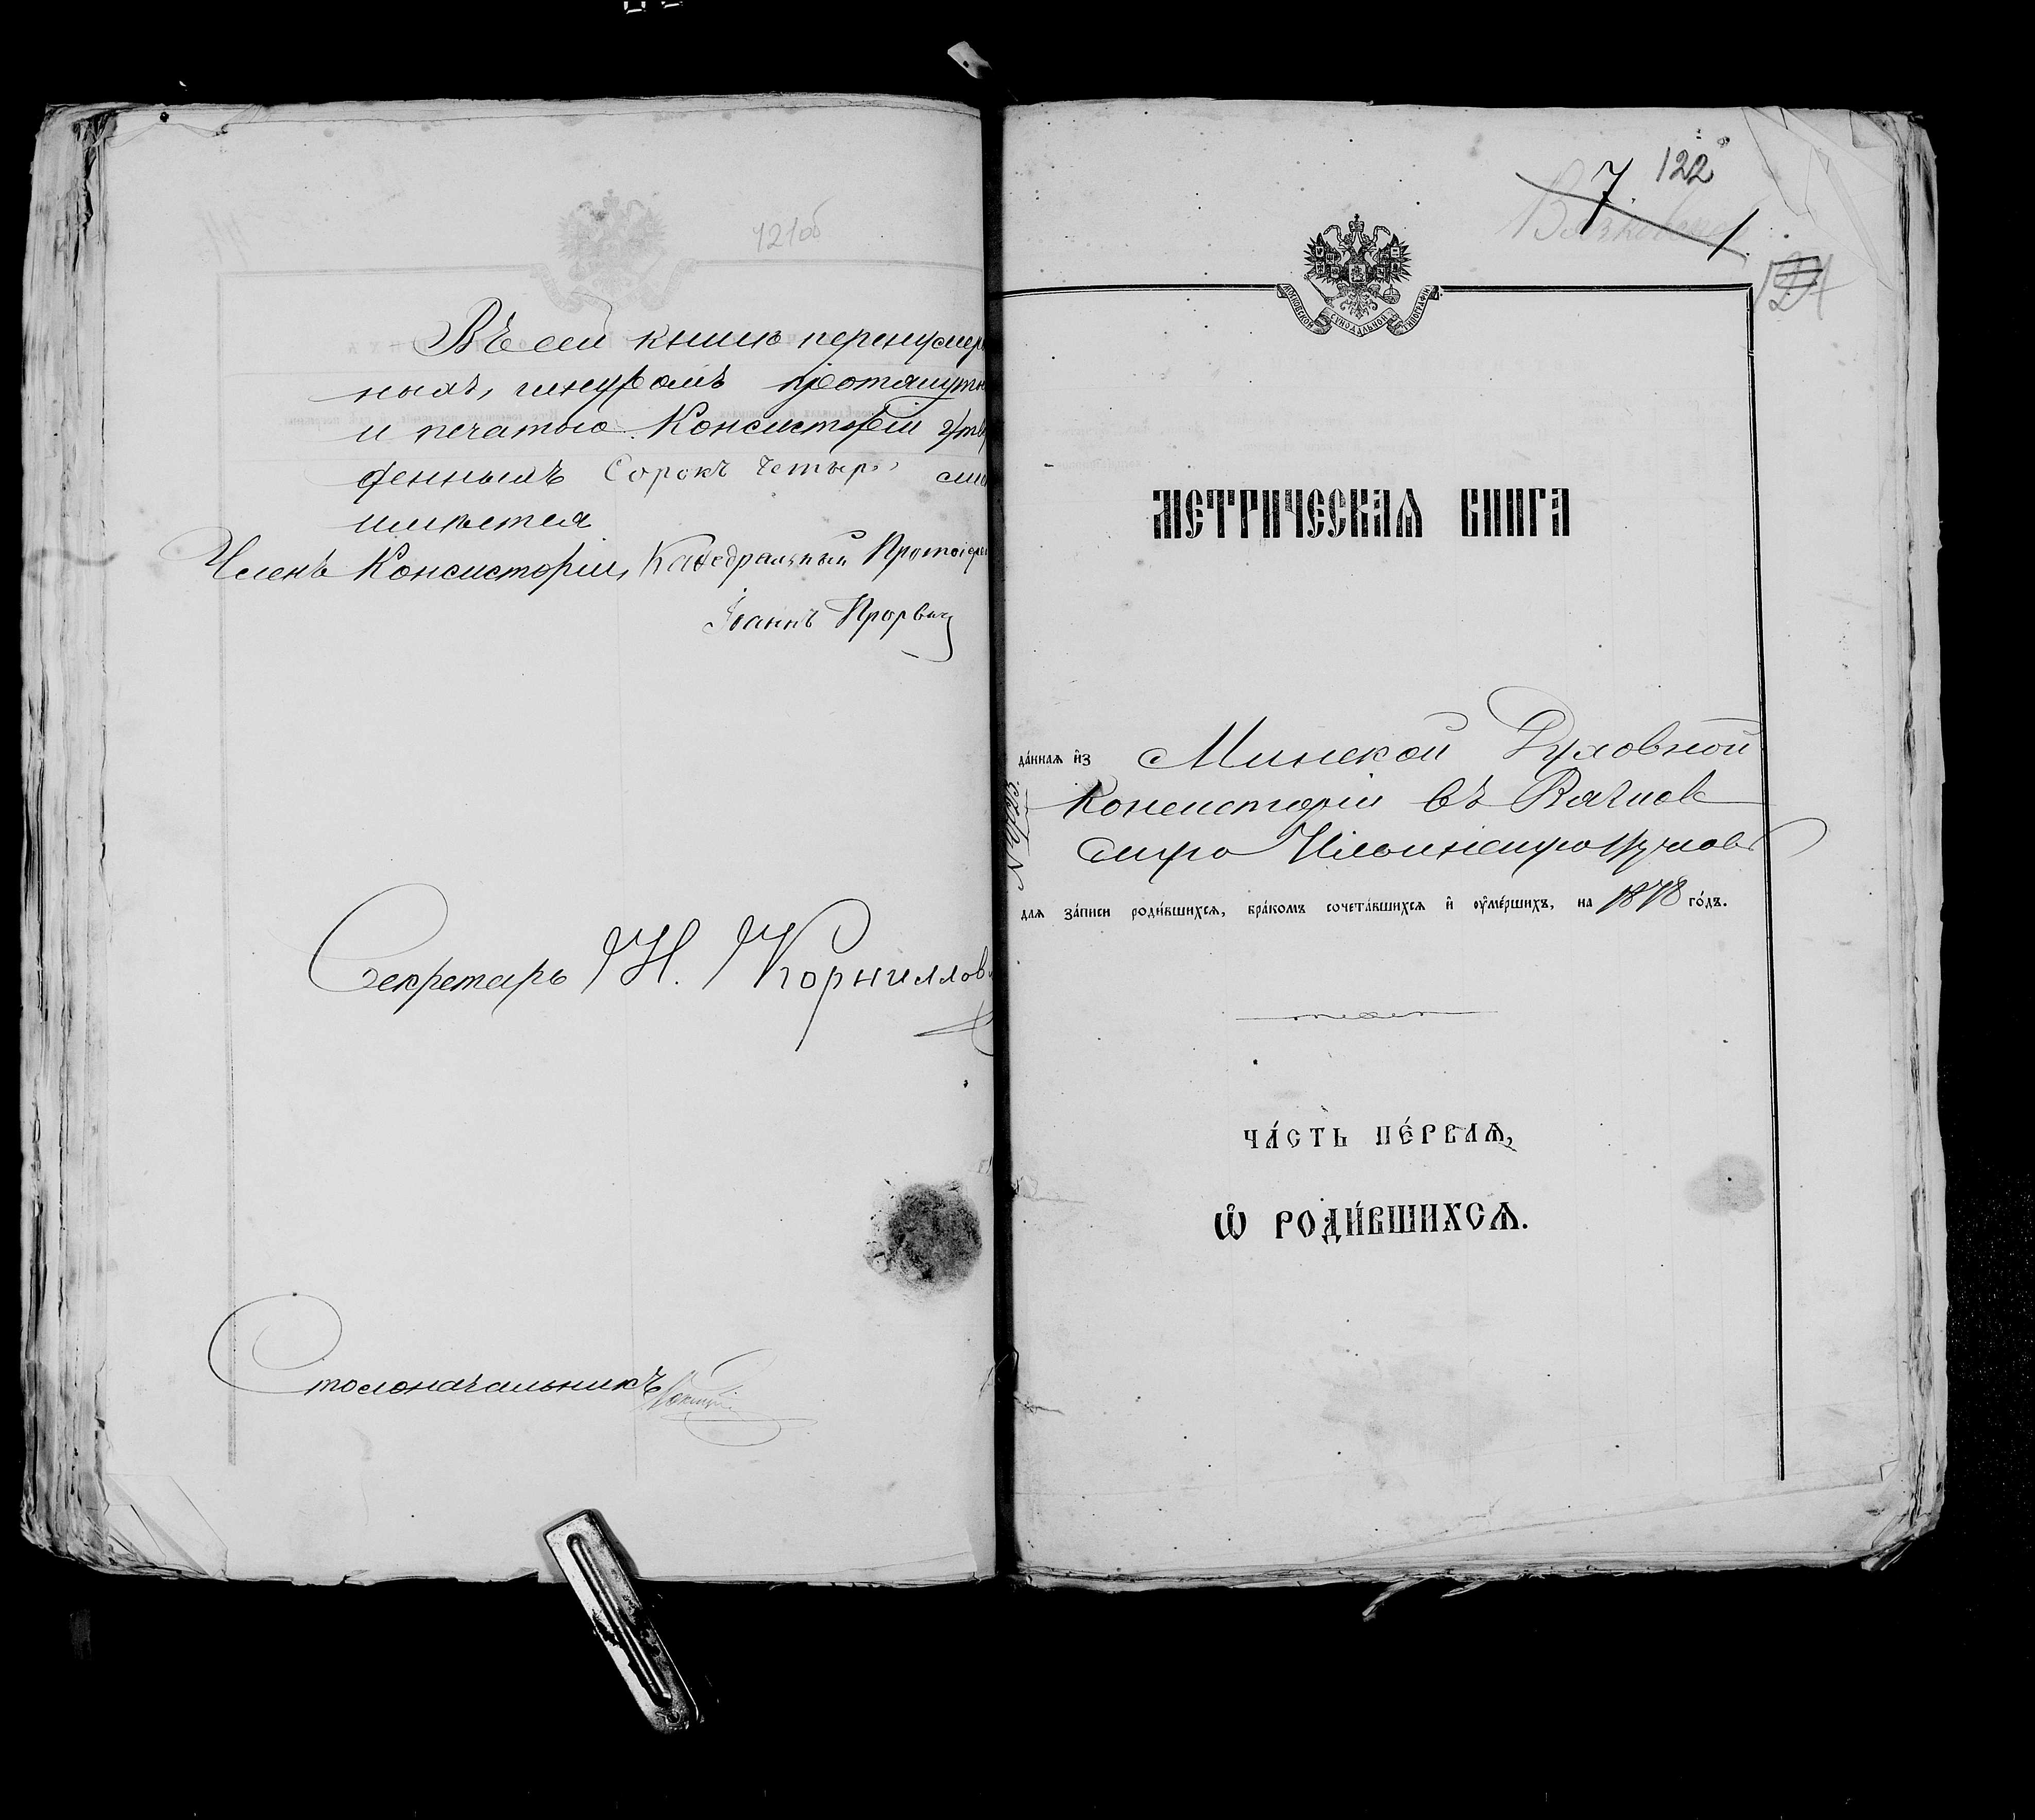 121об
Въ сей книгѣ перенумеро
ныхъ, шнуромъ протянуты
и печатью Консисторіи утвер
денныхъ Сорокъ четыре
имѣется
Членъ Консисторіи, Кафедральный Протоіере
Іоаннъ
Секретарь Н. Корниллов
Столоначальникъ
7 122
МОСКОВСКОЙ СУНОДАЛЬНОЙ ТИПОГРАФІИ
МЕТРИЧЕСКАѦ КНИГА
да́ннаѧ и҆з Минской Духовной
Консисторіи въ
для за́писи роди́вшихсѧ, бра́комъ сочета́вшихсѧ и҆ ᲂу҆ме́ршихъ, на 1878 го́дъ.
ЧА́СТЬ ПЕ́РВАѦ,
Ѡ҆ РОДИ́ВШИХСѦ.